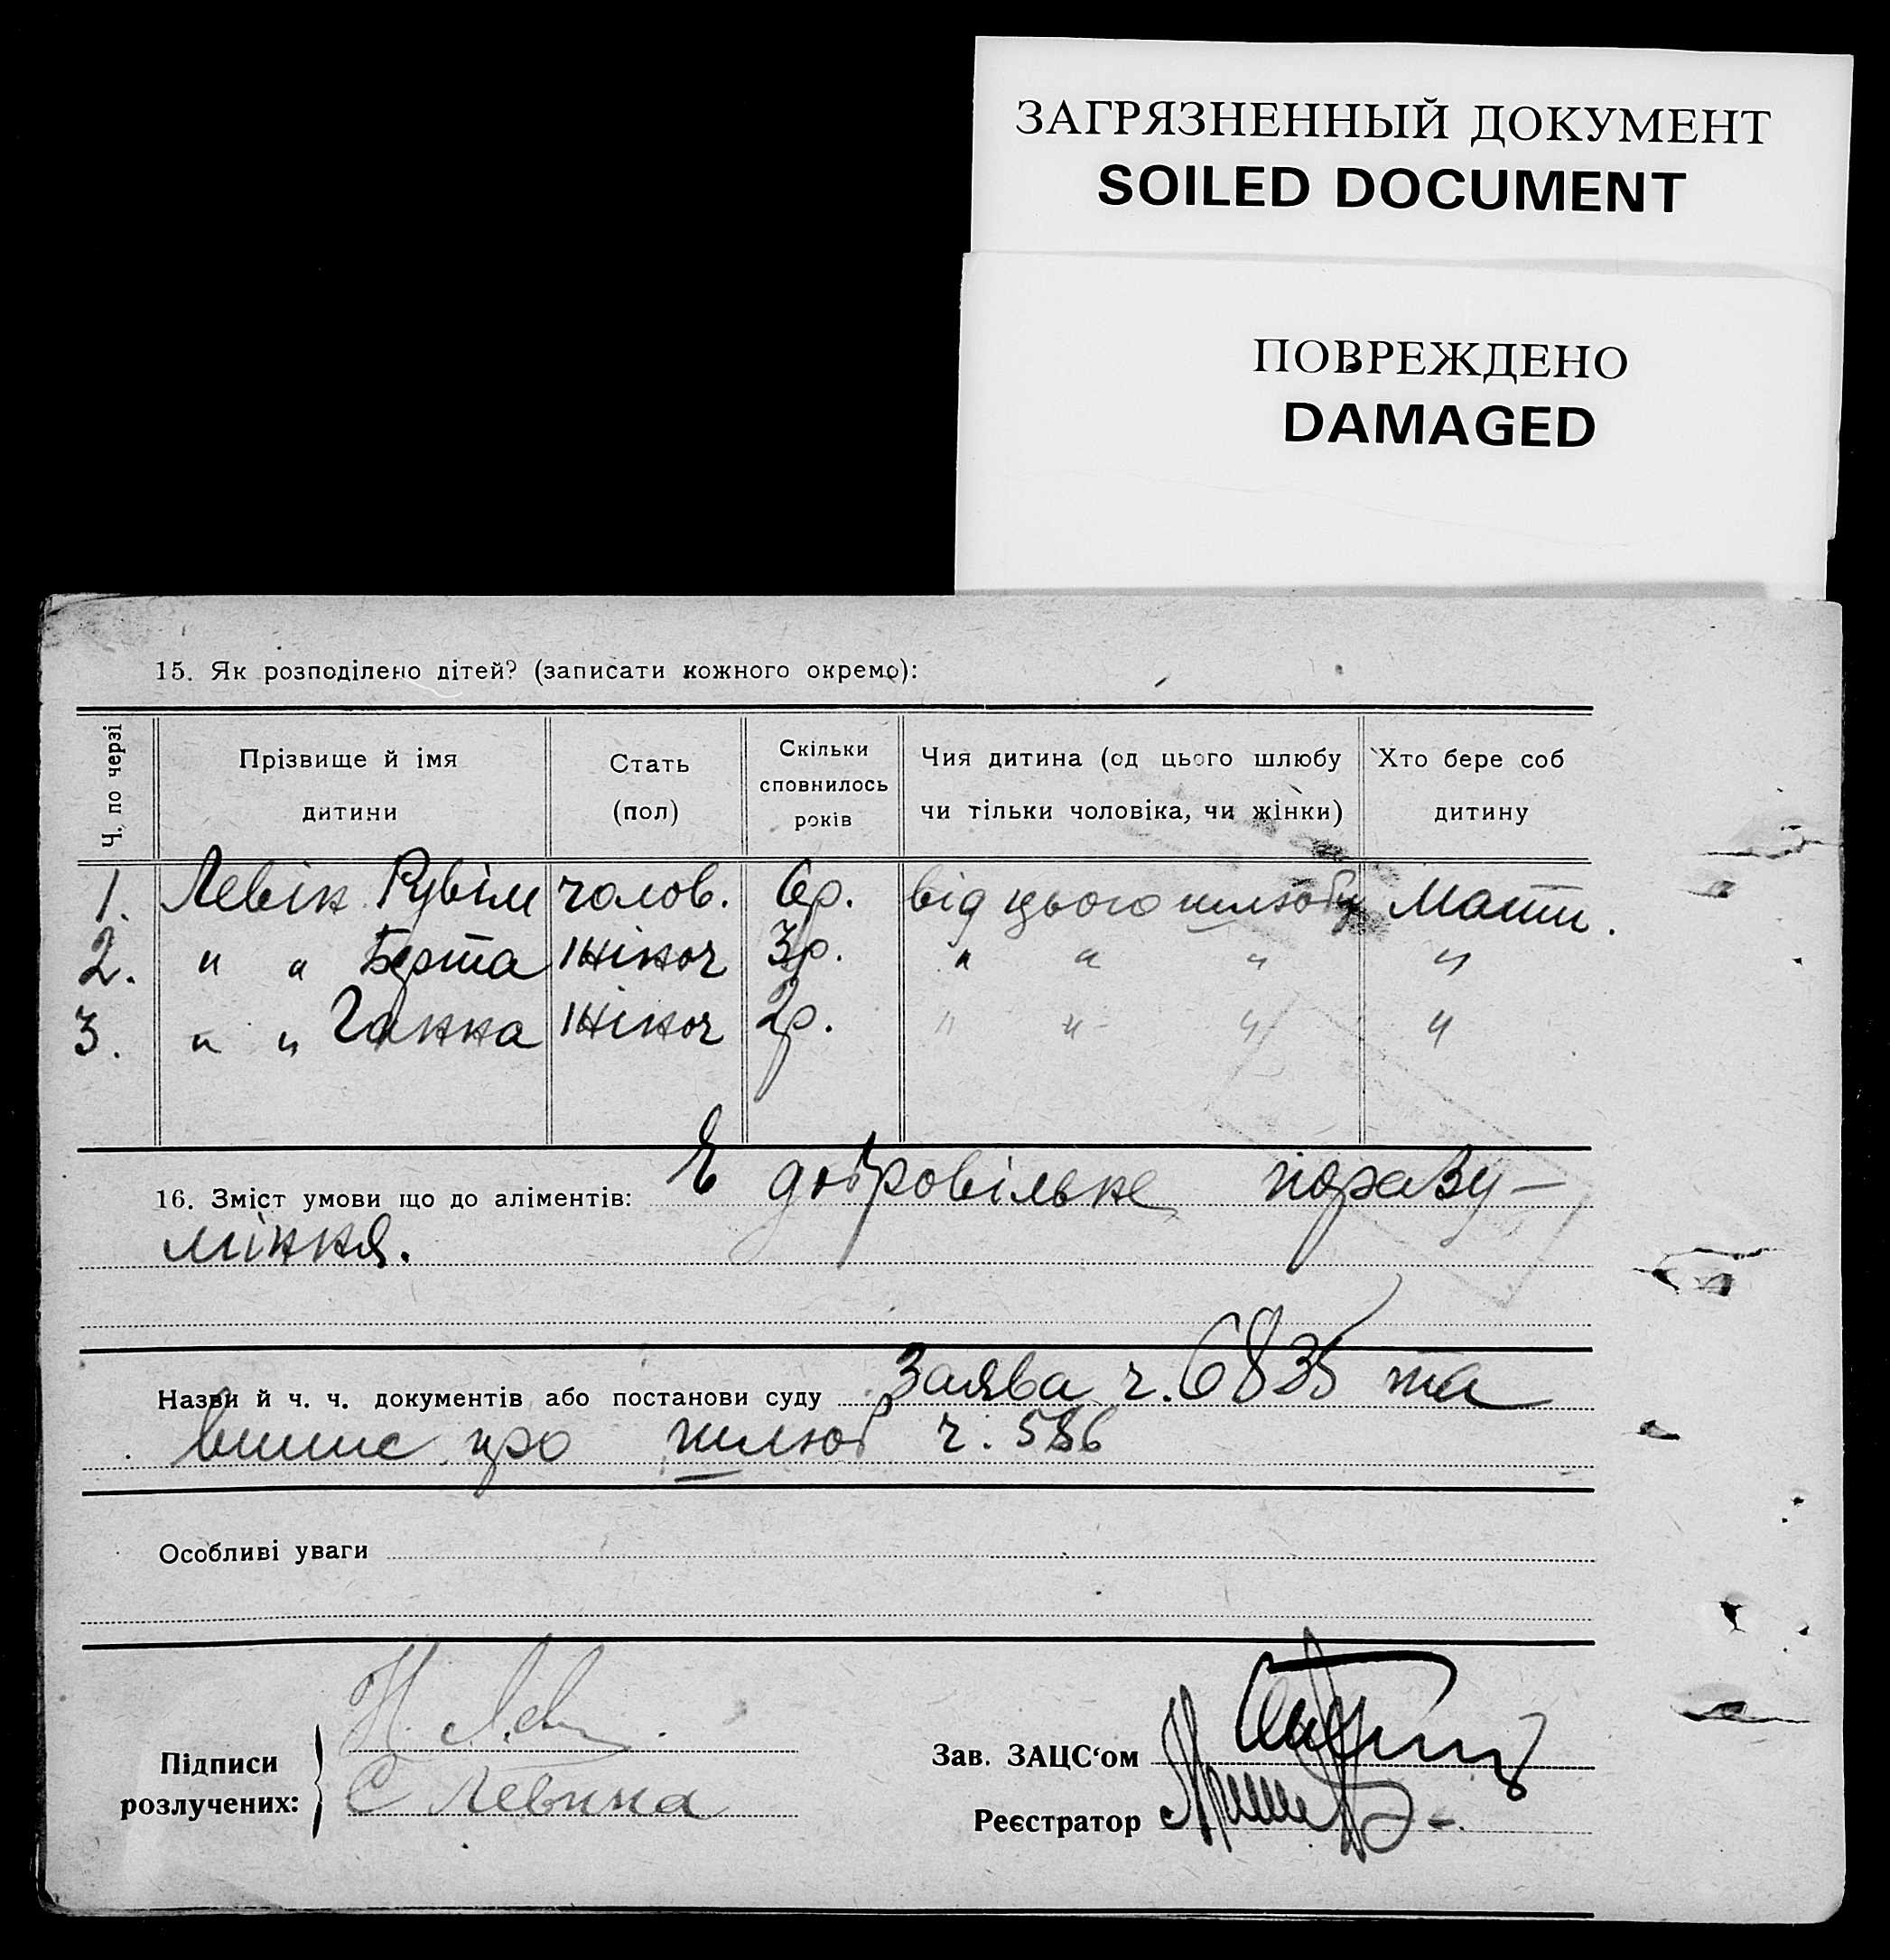 ЗАГРЯЗНЕННЫЙ ДОКУМЕНТ
SOILED DOCUMENT
ПОВРЕЖДЕНО
DAMAGED
15. Як розподілено дітей? (записати кожного окремо):
Ч. по черзі
Прізвище й імя дитини
Стать (пол)
Скільки сповнилось років
Чия дитина (од цього шлюбу чи тільки чоловіка, чи жінки)
Хто бере соб дитину
1. Левін Рувім чолов. 6р. від цього шлюбу Мати.
2. " " Берта жіноч 3р. " " " "
3. " " Ганна жіноч 2р. " " " "
16. Зміст умови що до аліментів: Є добровільне поразу-
міння.
Назви й ч. ч. документів або постанови суду Заява ч. 6835 та
випис про шлюб ч. 586
Особливі уваги
Підписи розлучених:
Н. Лев
С Левина
Зав. ЗАЦС‘ом
Реєстратор